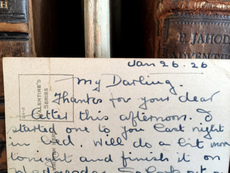 P. JAHOD
ADVENT
Jan 26. 26
My Darling
Thanks for your dear
letter this afternoon. I
started one to you last night
in bed. Will do a bit more
tonight and finish it on
VALENTINE'S
SERIES